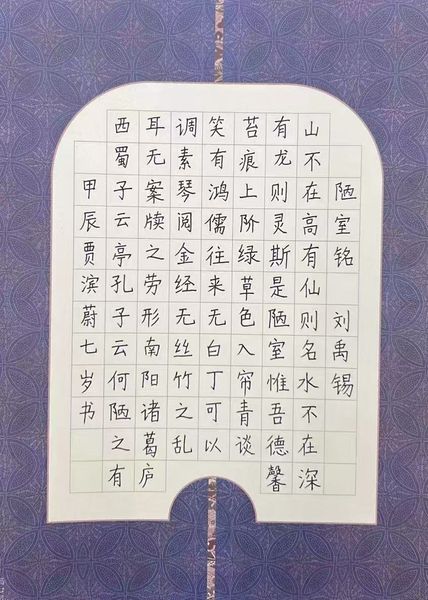 陋室铭 刘禹锡
山不在高有仙则名水不在深
有龙则灵斯是陋室惟吾德馨
苔痕上阶绿草色入帘青谈
笑有鸿儒往来无白丁可以
调素琴阅金经无丝竹之乱
耳无案牍之劳形南阳诸葛庐
西蜀子云亭孔子云何陋之有
甲辰贾滨蔚七岁书